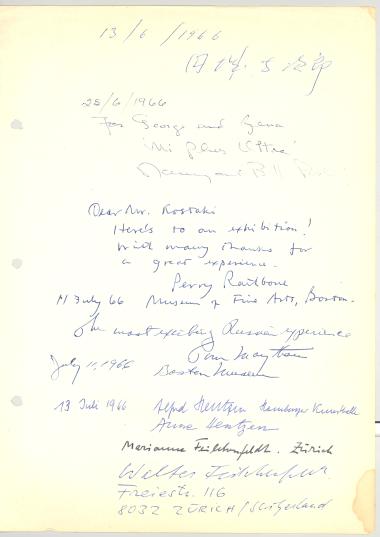 13/6/1966
28/6/1966
For George and
'Ne plus Ultra'
Nancy and Bill
Dear Mr. Kostaki
Here's to an exhibition!
With many thanks for
a great experience.
Perry Rathbone
11 July 66 Museum of Fine Arts, Boston.
The most exciting Russian experience
July 11, 1966
Boston Museum
13 Juli 1966 Alfred Hentzen Hamburger Kunsthalle
Anne Hentzen
Marianne Feilchenfeldt. Zürich
Walter Feilchenfeldt.
Freiestr. 116
8032 ZÜRICH/Switzerland